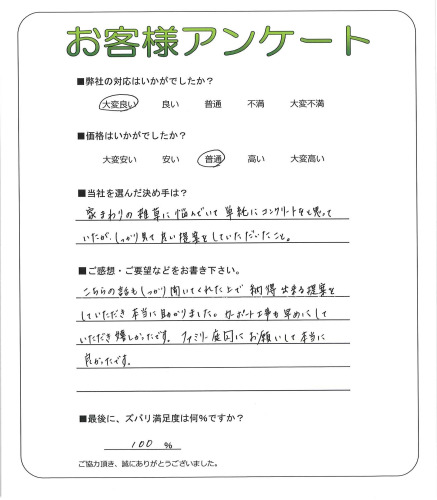 お客様アンケート
■弊社の対応はいかがでしたか？
大変良い 良い 普通 不満 大変不満
■価格はいかがでしたか？
大変安い 安い 普通 高い 大変高い
■当社を選んだ決め手は？
家まわりの雑草に悩んでいて単純にコンクリートをと思って
いたが、しっかり見て良い提案をしていただいたこと。
■ご感想・ご要望などをお書き下さい。
こちらの話もしっかり聞いてくれた上で納得出来る提案を
していただき本当に助かりました。サポート工事も早めにして
いただき嬉しかったです。ファミリー庭園にお願いして本当に
良かったです。
■最後に、ズバリ満足度は何％ですか？
100 ％
ご協力頂き、誠にありがとうございました。